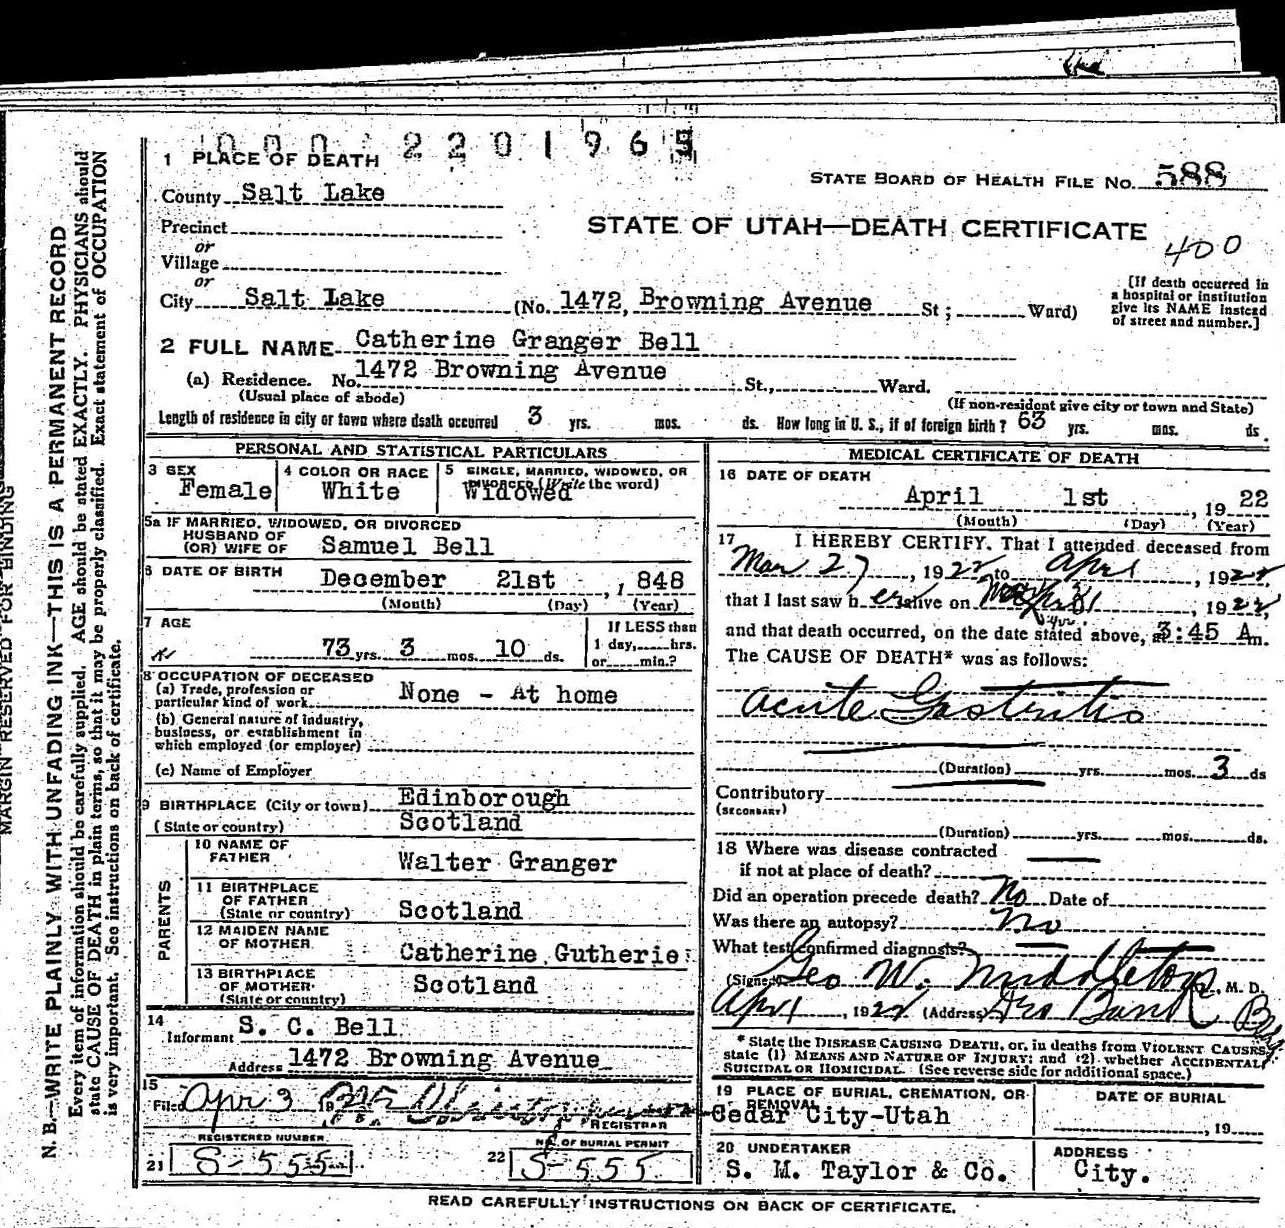 000 2201965
1 PLACE OF DEATH
STATE BOARD OF HEALTH FILE NO. 588
County Salt Lake
STATE OF UTAH—DEATH CERTIFICATE
400
Precinct
or
Village
or
City Salt Lake (No. 1472, Browning Avenue St; Ward)
[If death occurred in
a hospital or institution
give its NAME instead
of street and number.]
2 FULL NAME Catherine Granger Bell
(a) Residence. No. 1472 Browning Avenue St., Ward.
(Usual place of abode)
(If non-resident give city or town and State)
Length of residence in city or town where death occurred 3 yrs. mos. ds. How long in U. S., if of foreign birth? 63 yrs. mos. ds.
PERSONAL AND STATISTICAL PARTICULARS
3 SEX
Female
4 COLOR OR RACE
White
5 SINGLE, MARRIED, WIDOWED, OR
DIVORCED (Write the word)
Widowed
5a IF MARRIED, WIDOWED, OR DIVORCED
HUSBAND OF
(OR) WIFE OF Samuel Bell
6 DATE OF BIRTH December 21st, 1848
(Month) (Day) (Year)
7 AGE
73 yrs. 3 mos. 10 ds.
If LESS than
1 day, hrs.
or min.?
8 OCCUPATION OF DECEASED
(a) Trade, profession or
particular kind of work None - At home
(b) General nature of industry,
business, or establishment in
which employed (or employer)
(c) Name of Employer
9 BIRTHPLACE (City or town) Edinborough
(State or country) Scotland
PARENTS
10 NAME OF
FATHER Walter Granger
11 BIRTHPLACE
OF FATHER
(State or country) Scotland
12 MAIDEN NAME
OF MOTHER Catherine Gutherie
13 BIRTHPLACE
OF MOTHER
(State or country) Scotland
14
Informant S. C. Bell
Address 1472 Browning Avenue
15
Filed Apr 3 19
REGISTRAR
REGISTERED NUMBER
21 S-555
NO. OF BURIAL PERMIT
22 S-555
MEDICAL CERTIFICATE OF DEATH
16 DATE OF DEATH
April 1st, 1922
(Month) (Day) (Year)
17 I HEREBY CERTIFY. That I attended deceased from
Mar 27, 1922 to Apr 1, 1922
that I last saw her alive on Apr 1, 1922,
and that death occurred, on the date stated above, at 3:45 A m.
The CAUSE OF DEATH* was as follows:
Acute Gastritis
(Duration) yrs. mos. 3 ds
Contributory
(SECONDARY)
(Duration) yrs. mos. ds.
18 Where was disease contracted
if not at place of death?
Did an operation precede death? No Date of
Was there an autopsy? No
What test confirmed diagnosis?
(Signed) Geo W. Middleton, M. D.
Apr 1, 1922 (Address) Bank Bg
* State the DISEASE CAUSING DEATH, or, in deaths from VIOLENT CAUSES,
state (1) MEANS AND NATURE OF INJURY; and (2) whether ACCIDENTAL,
SUICIDAL OR HOMICIDAL. (See reverse side for additional space.)
19 PLACE OF BURIAL, CREMATION, OR
REMOVAL
Cedar City-Utah
DATE OF BURIAL
, 19
20 UNDERTAKER
S. M. Taylor & Co.
ADDRESS
City.
READ CAREFULLY INSTRUCTIONS ON BACK OF CERTIFICATE.
MARGIN RESERVED FOR BINDING
N. B.—WRITE PLAINLY WITH UNFADING INK—THIS IS A PERMANENT RECORD
Every item of information should be carefully supplied. AGE should be stated EXACTLY. PHYSICIANS should
state CAUSE OF DEATH in plain terms, so that it may be properly classified. Exact statement of OCCUPATION
is very important. See instructions on back of certificate.